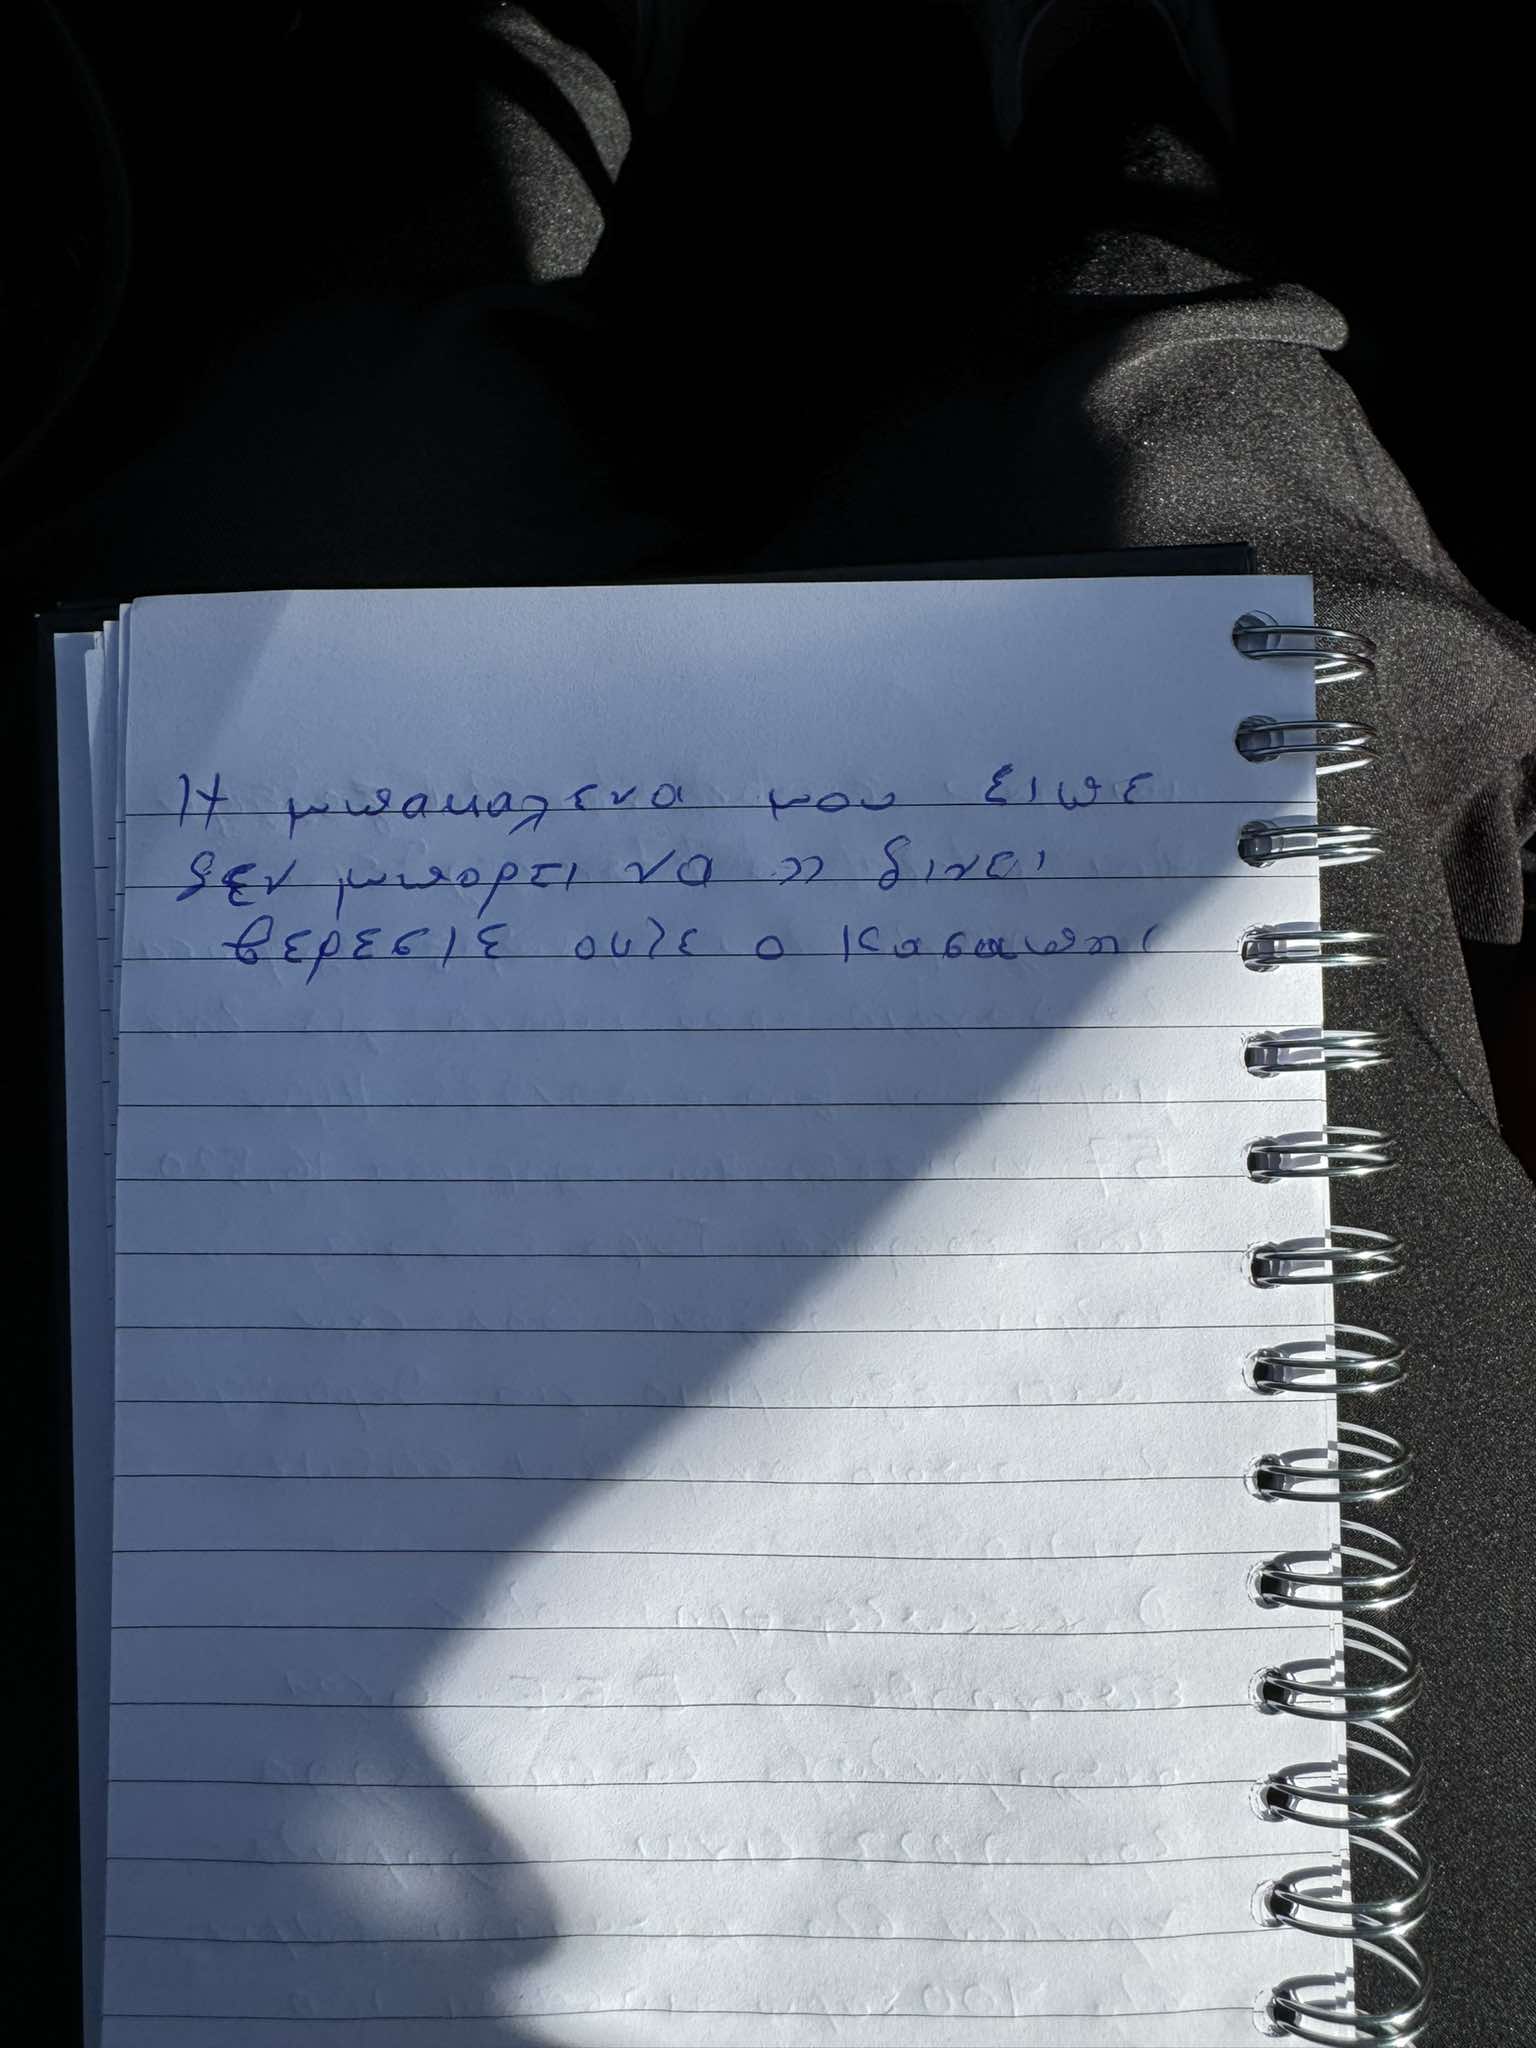 Η μπακαλενα μου ειπε
δεν μπορει να π δινει
βερεσιε ουτε ο κασαπης